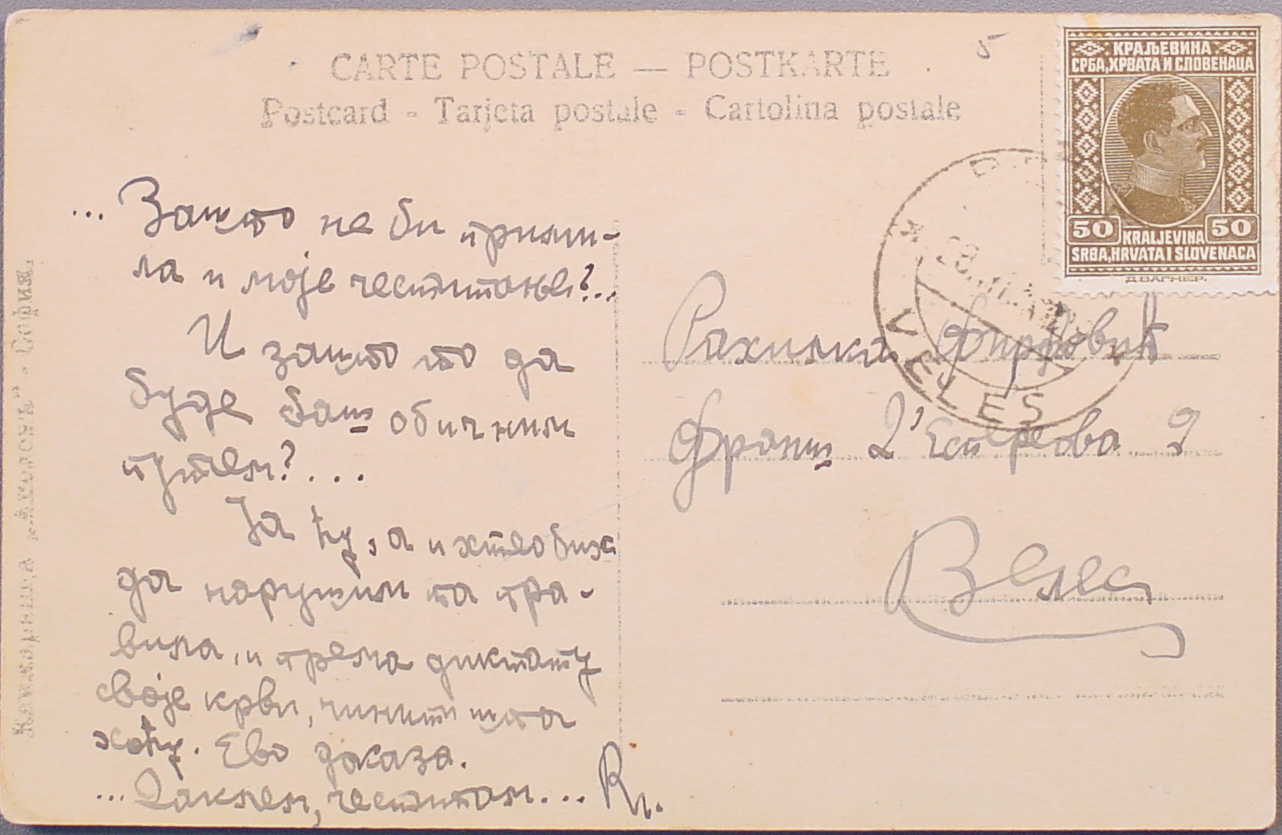 CARTE POSTALE — POSTKARTE
Postcard - Tarjeta postale - Cartolina postale
5
КРАЉЕВИНА
СРБА, ХРВАТА И СЛОВЕНАЦА
50 50
KRALJEVINA
SRBA, HRVATA I SLOVENACA
Д. ВАГНЕР.
VELES
... Зашто не би прими-
ла и моје честитање?...
И зашто то да
буде баш обичним
путем?...
Ја ћу, а и хтео бих
да нарушим та пра-
вила, и према диктату
своје крви, чинити шта
хоћу. Ево доказа.
... Дакле, честитам...
Рахилка
Франш Д'Епереова 2
Велес
Книжарница „Аполонъ" - София.